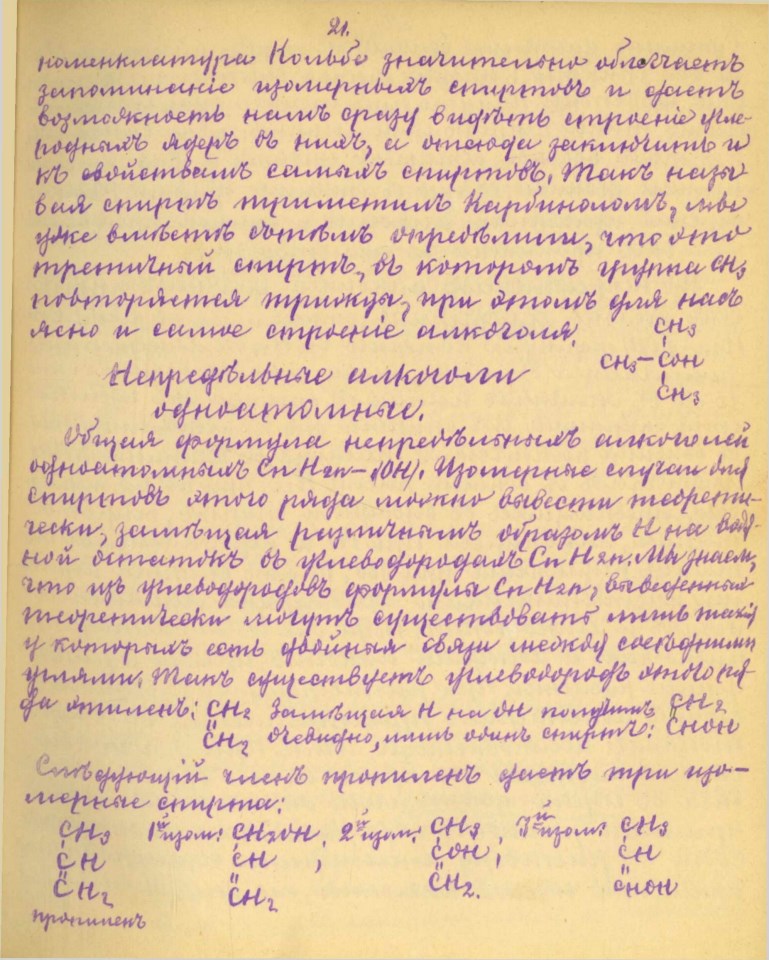 21.
номенклатура Кольбе значительно облегчаетъ
запоминаніе изомерныхъ спиртовъ и даетъ
возможность намъ сразу видѣть строеніе угле-
родныхъ ядеръ въ нихъ, а отсюда заключить и
къ свойствамъ самыхъ спиртовъ. Такъ назы
вая спиртъ триметилъ Карбиноломъ, мы
уже вмѣстѣ съ тѣмъ опредѣлили, что это
третичный спиртъ, въ которомъ группа CH3
повторяется трижды, при этомъ для насъ
ясно и самое строеніе алкоголя.
CH3
CH3–COH
CH3
Непредѣльные алкоголи
одноатомные.
Общая формула непредѣльныхъ алкоголей
одноатомныхъ CnH2n–1(OH). Изомерные случаи для
спиртовъ этого ряда можно вывести теорети-
чески, замѣщая различнымъ образомъ H на вод-
ной остатокъ въ углеводородахъ CnH2n. Мы знаем,
что изъ углеводородовъ формулы CnH2n, выведенныхъ
теоретически могутъ существовать лишь такіе
у которыхъ есть двойныя связи между сосѣдними
углями. Такъ существуетъ углеводородъ этого ря
да этиленъ: CH2 Замѣщая H на OH получимъ CH2
CH2 очевидно, лишь одинъ спиртъ: CHOH
Слѣдующій членъ пропиленъ даетъ три изо-
мерные спирта:
CH3 1й изом: CH2OH, 2й изом: CH3, 3й изом: CH3
CH CH COH CH
CH2 CH2 CH2. CHOH
пропиленъ